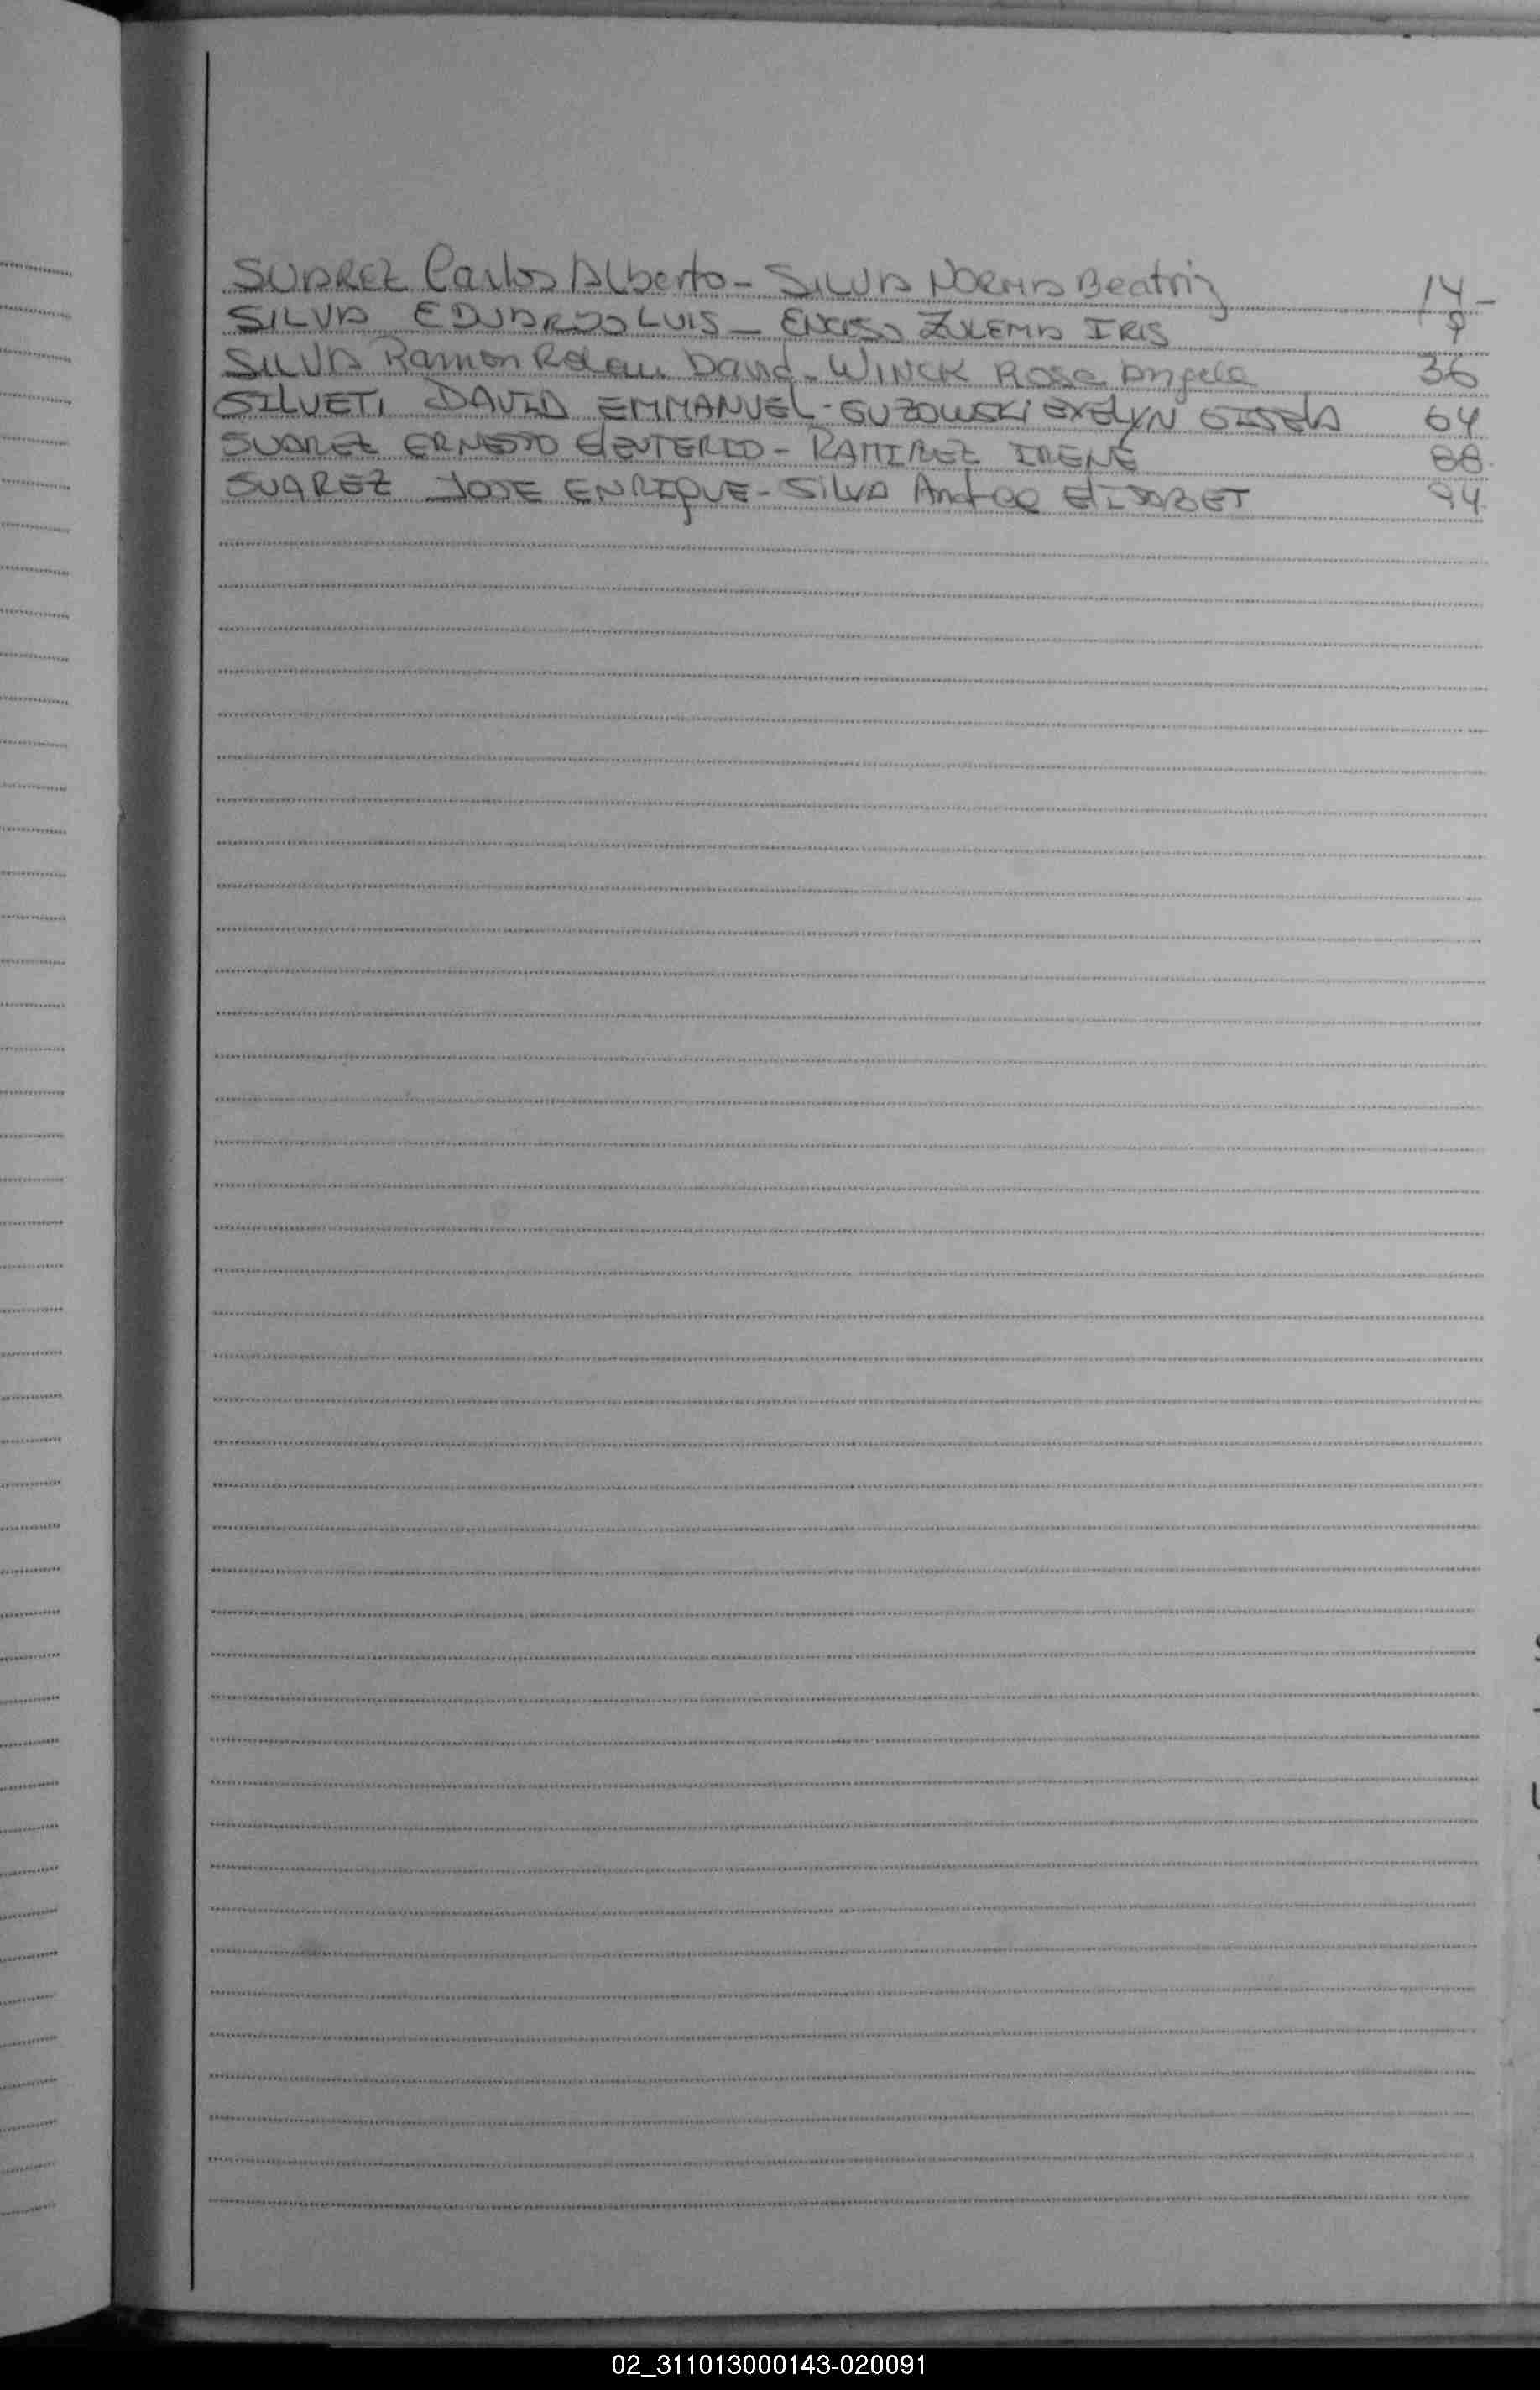 SUAREZ Carlos Alberto - SILVA NORMA Beatriz 14 -
SILVA EDUARDO LUIS - ENCISO ZULEMA IRIS 9
SILVA Ramon David - WINCK Rosa Angela 36
SILVETI DAVID EMMANUEL - GUZOWSKI EVELYN GISELA 64
SUAREZ ERNESTO ELEUTERIO - RAMIREZ IRENE 88
SUAREZ JOSE ENRIQUE - SILVA Andrea ELISABET 94
02_311013000143-020091